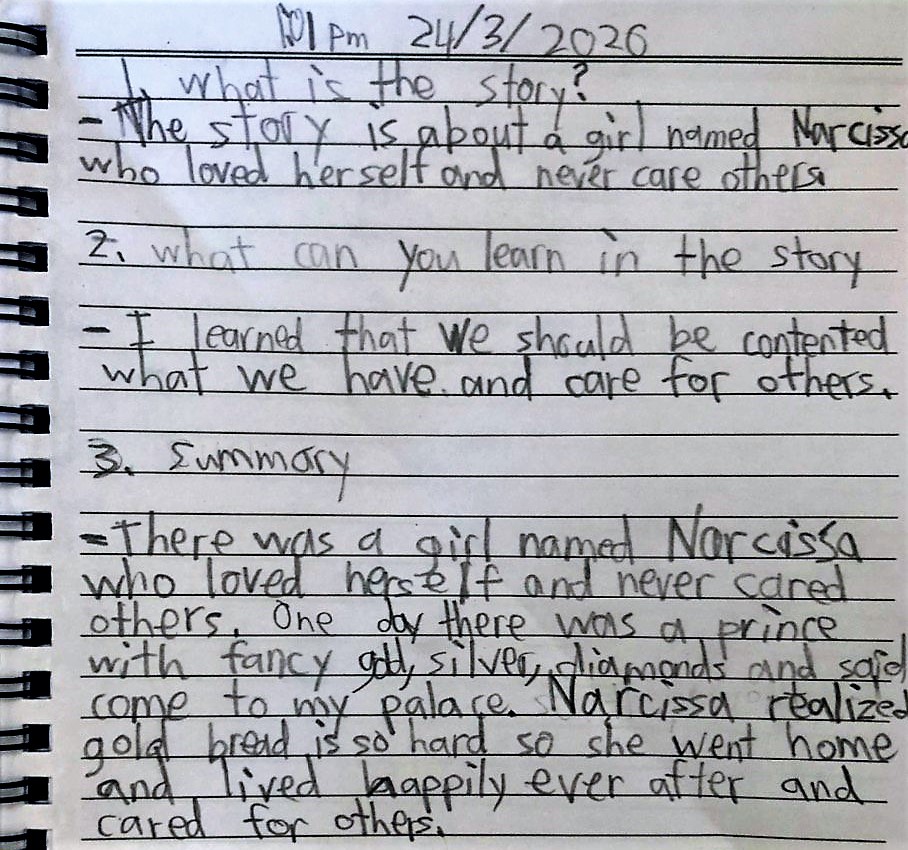 1 pm 24/3/2026
1. what is the story?
- The story is about a girl named Narcissa
who loved herself and never care others.
2. what can you learn in the story
- I learned that we should be contented
what we have. and care for others.
3. Summary
- There was a girl named Narcissa
who loved herself and never cared
others. One day there was a prince
with fancy gold, silver, diamonds and said
come to my palace. Narcissa realized
gold bread is so hard so she went home
and lived happily ever after and
cared for others.